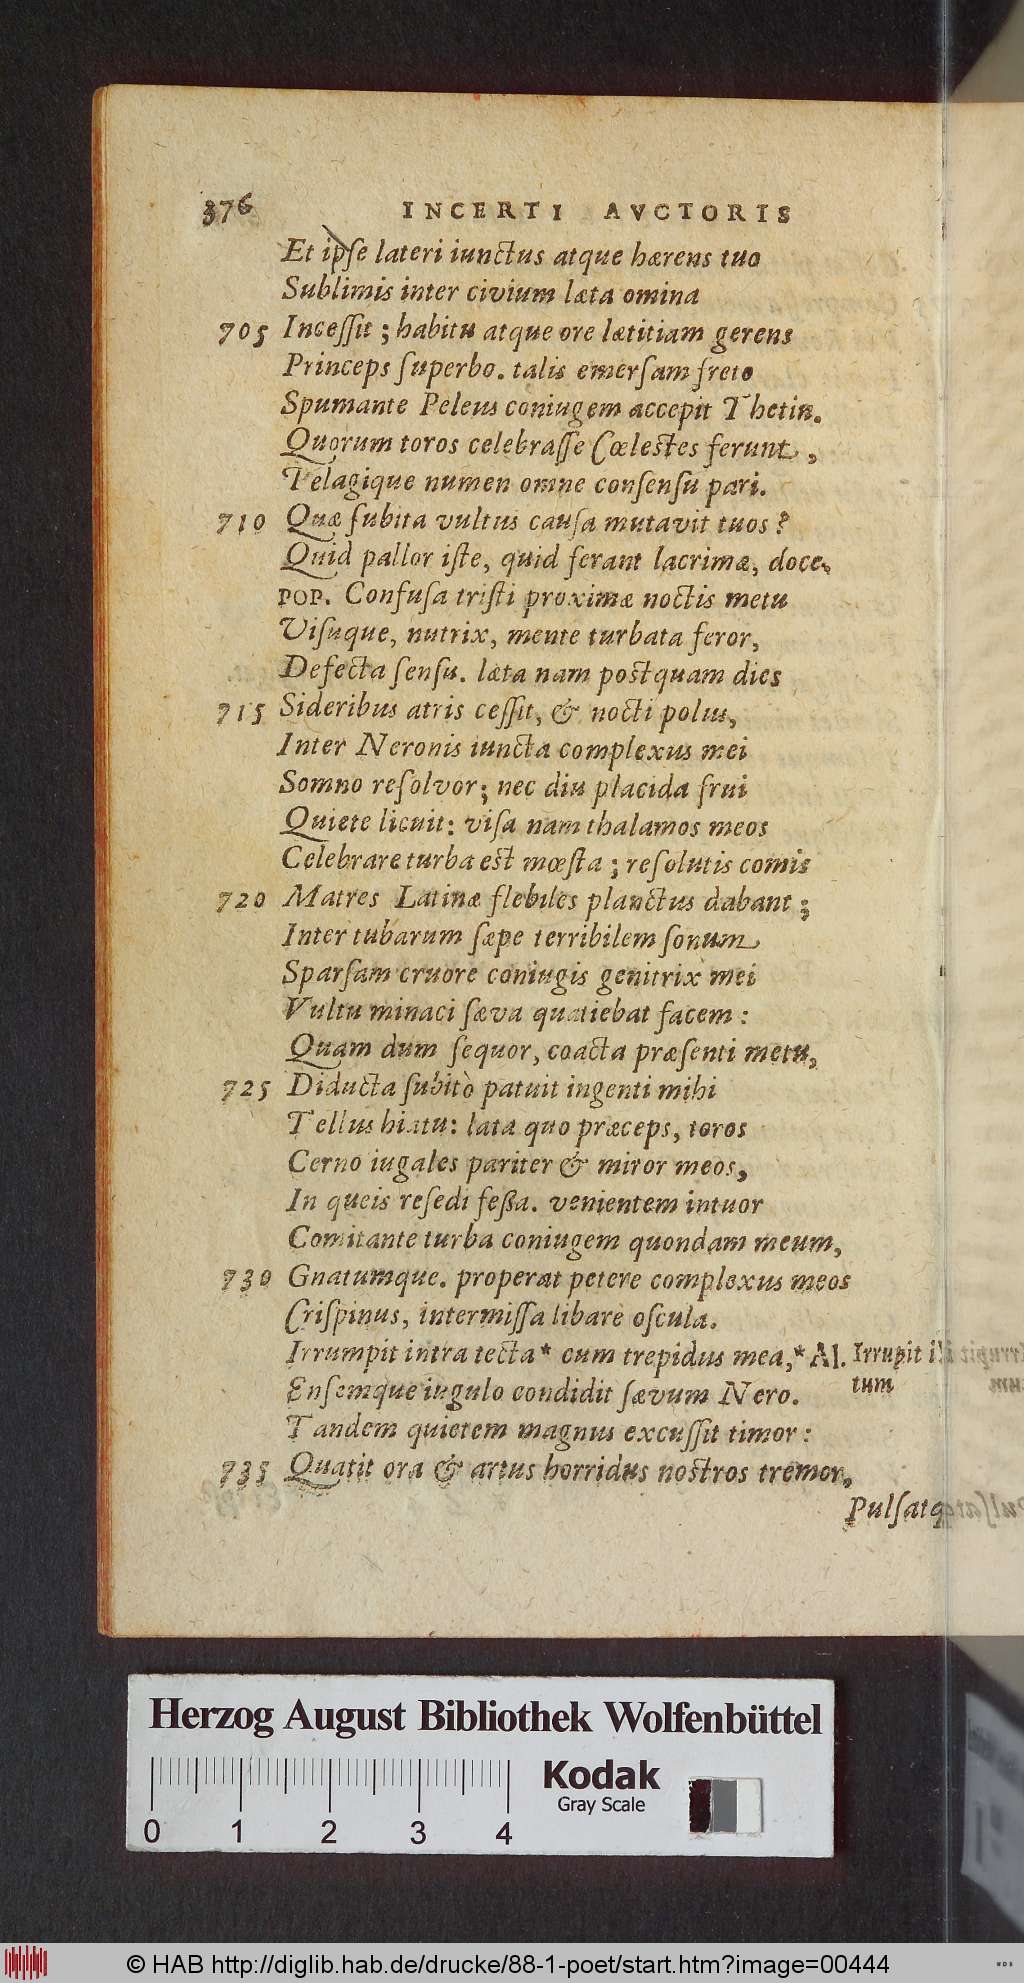 376 INCERTI AVCTORIS
Et ipſe lateri iunctus atque hærens tuo
Sublimis inter civium læta omina
705 Inceſſit ; habitu atque ore lætitiam gerens
Princeps ſuperbo. talis emerſam freto
Spumante Peleus coniugem accepit Thetin.
Quorum toros celebraſſe Cœleſtes ferunt,
Pelagique numen omne conſenſu pari.
710 Quæ ſubita vultus cauſa mutavit tuos ?
Quid pallor iſte, quid ferant lacrimæ, doce.
POP. Confuſa triſti proximæ noctis metu
Viſuque, nutrix, mente turbata feror,
Defecta ſenſu. læta nam poſtquam dies
715 Sideribus atris ceſſit, & nocti polus,
Inter Neronis iuncta complexus mei
Somno reſolvor; nec diu placida frui
Quiete licuit: viſa nam thalamos meos
Celebrare turba eſt mœſta ; reſolutis comis
720 Matres Latinæ flebiles planctus dabant ;
Inter tubarum ſæpe terribilem ſonum
Sparſam cruore coniugis genitrix mei
Vultu minaci ſæva quatiebat facem :
Quam dum ſequor, coacta præſenti metu,
725 Diducta ſubitò patuit ingenti mihi
Tellus hiatu: lata quo præceps, toros
Cerno iugales pariter & miror meos,
In queis reſedi feßa. venientem intuor
Comitante turba coniugem quondam meum,
730 Gnatumque. properat petere complexus meos
Criſpinus, intermiſſa libare oſcula.
Irrumpit intra tecta* cum trepidus mea,* Al. Irrupit
tum
Enſemque iugulo condidit ſævum Nero.
Tandem quietem magnus excuſſit timor :
735 Quatit ora & artus horridus noſtros tremor,
Pulſatq
Herzog August Bibliothek Wolfenbüttel
Kodak
Gray Scale
0 1 2 3 4
© HAB http://diglib.hab.de/drucke/88-1-poet/start.htm?image=00444